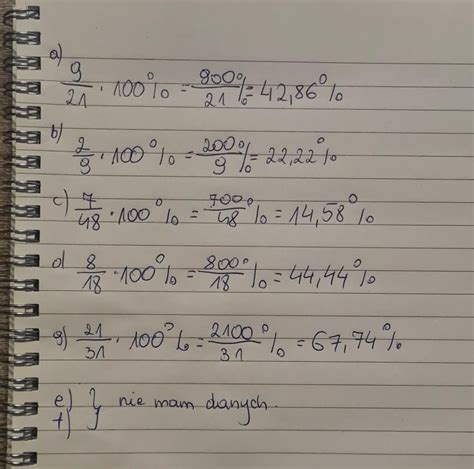 a)
9/21 · 100% = 900/21 % = 42,86%
b)
2/9 · 100% = 200/9 % = 22,22%
c) 7/48 · 100% = 700/48 % = 14,58%
d) 8/18 · 100% = 800/18 % = 44,44%
g) 21/31 · 100% = 2100/31 % = 67,74%
e) } nie mam danych.
f)